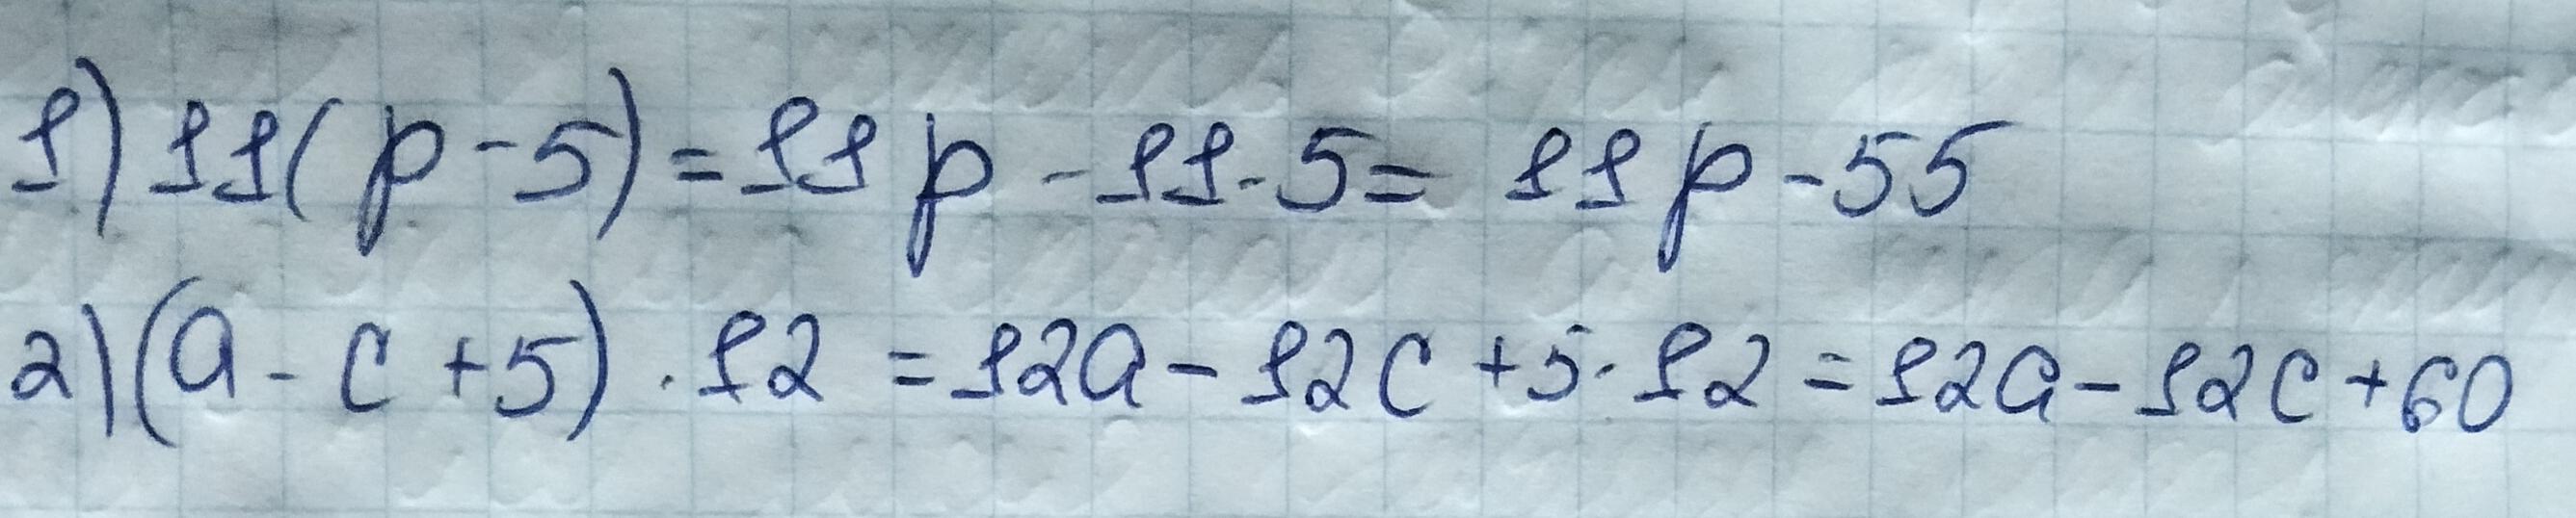 1) 11(p-5)=11p-11·5=11p-55
2) (a-c+5)·12=12a-12c+5·12=12a-12c+60